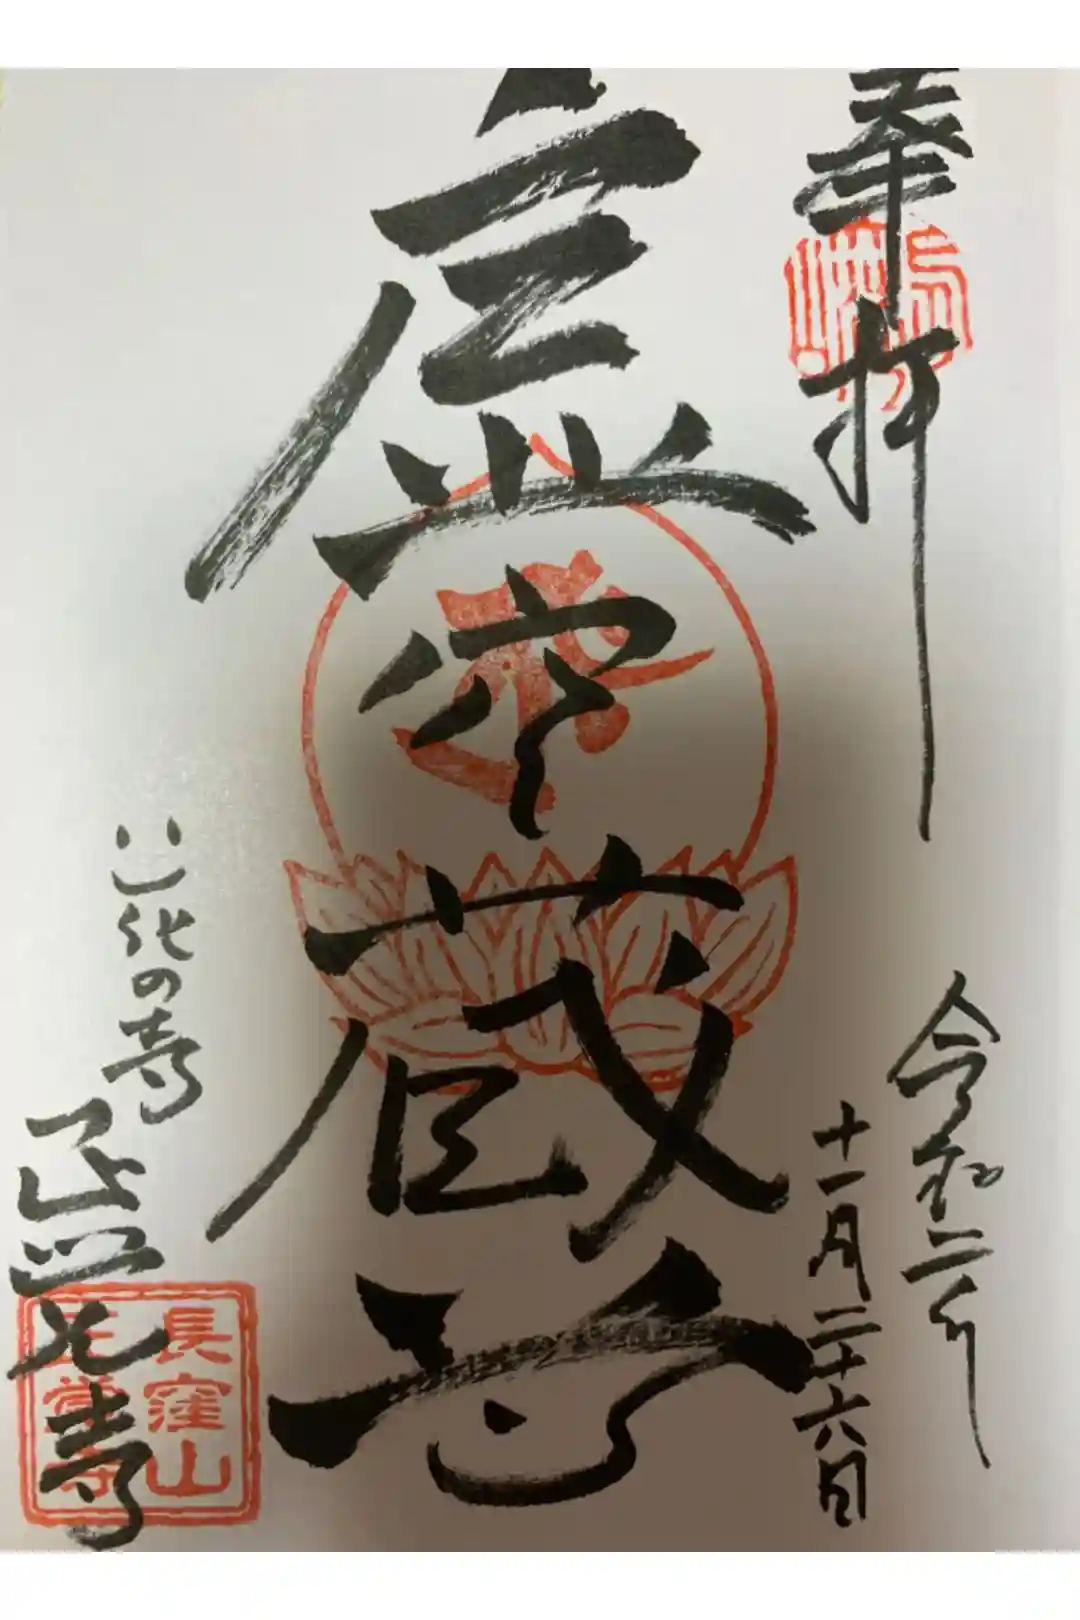 奉拝
令和二年
十一月二十六日
虚空蔵尊
花の寺
正覚寺
長窪山
正覚寺